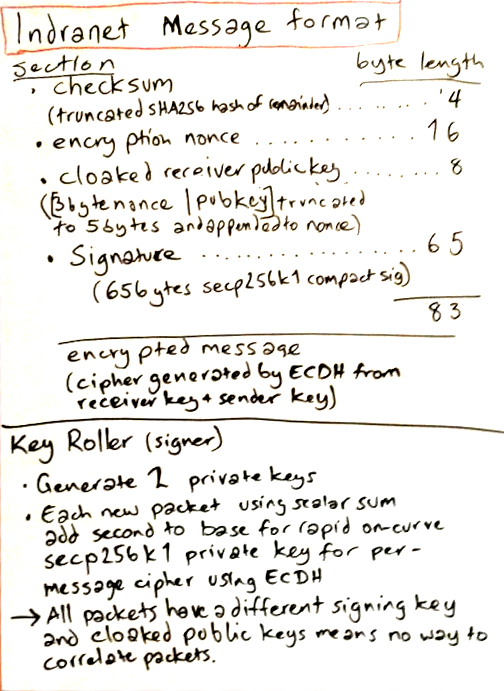 Indranet Message format
section byte length
• checksum
(truncated SHA256 hash of remainder) ......... 4
• encryption nonce ............ 16
• cloaked receiver public key ........ 8
([3bytenonce | pubkey] truncated
to 5bytes and appended to nonce)
• Signature ................ 65
(65bytes secp256k1 compact sig)
83
encrypted message
(cipher generated by ECDH from
receiver key + sender key)
Key Roller (signer)
• Generate 2 private keys
• Each new packet using scalar sum
add second to base for rapid on-curve
secp256k1 private key for per-
message cipher using ECDH
→ All packets have a different signing key
and cloaked public keys means no way to
correlate packets.